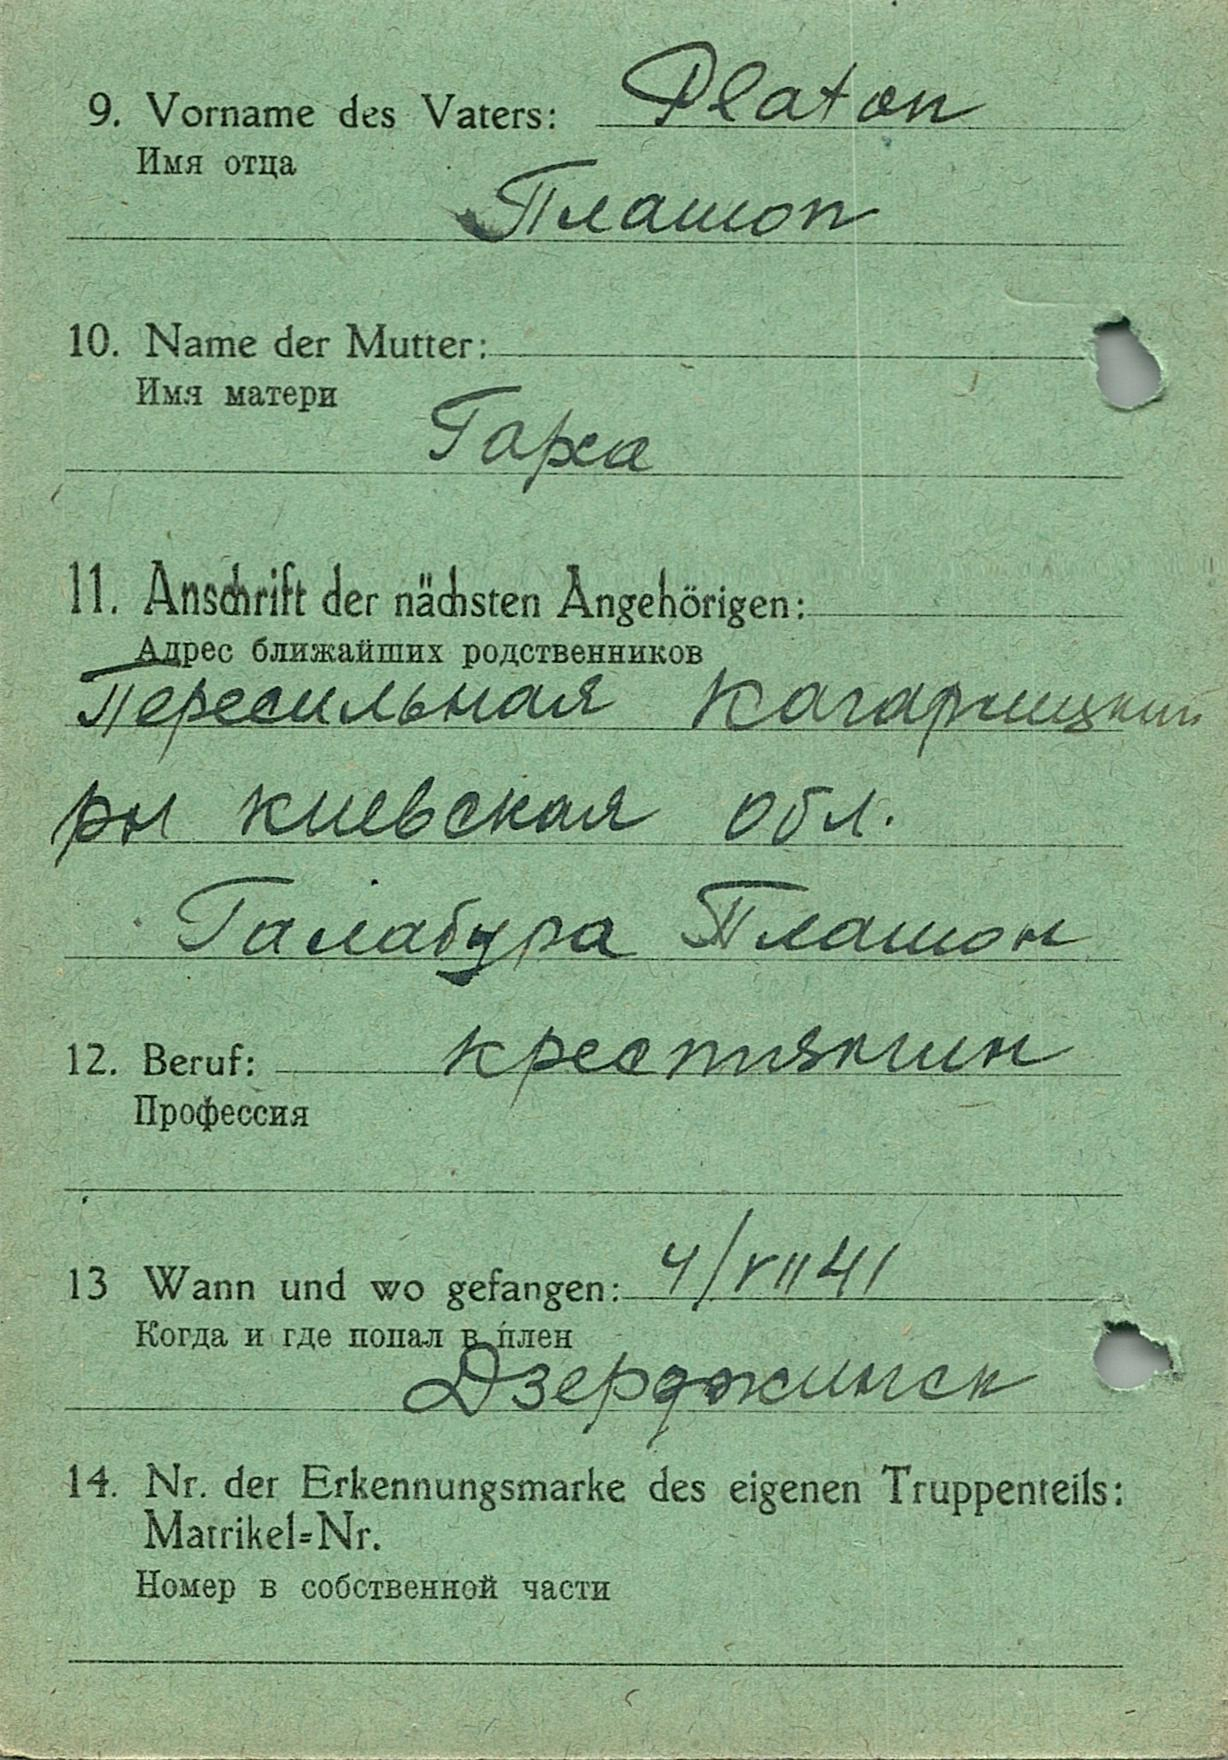 9. Vorname des Vaters: Platon
Имя отца
Платон
10. Name der Mutter:
Имя матери
Гарха
11. Anschrift der nächsten Angehörigen:
Адрес ближайших родственников
Пересильная Кагарлицкий
рн киевская обл.
Галабура Платон
12. Beruf: крестиянин
Профессия
13 Wann und wo gefangen: 4/VII 41
Когда и где попал в плен
Дзержинск
14. Nr. der Erkennungsmarke des eigenen Truppenteils:
Matrikel=Nr.
Номер в собственной части